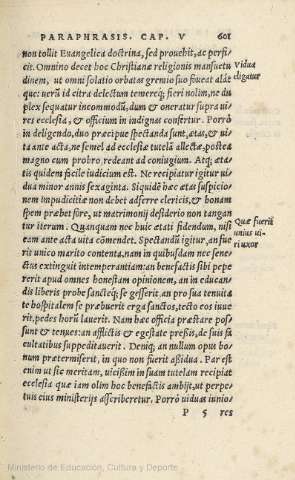 PARAPHRASIS. CAP. V 601
non tollit Euangelica doctrina, sed prouehit, ac perfi
cit. Omnino decet hoc Christianæ religionis mansuetu
dinem, ut omni solatio orbatas gremio suo foueat aldt
que: uerũ id citra delectum temereq; fieri nolim, ne du
plex sequatur incommodũ, dum & oneratur supra ui
res ecclesia, & officium in indignas confertur. Porrò
in deligendo, duo præcipue spectanda sunt, ætas, & ui
ta ante acta, ne semel ad ecclesiæ tutelã allectæ, postea
magno cum probro, redeant ad coniugium. Atq; æta=
tis quidem facile iudicium est. Ne recipiatur igitur ui
dua minor annis sexaginta. Siquidẽ hæc ætas suspicio
nem impudicitiæ non debet adferre clericis, & bonam
spem præbet fore, ut matrimonij desiderio non tangan
tur iterum. Quanquam nec huic ætati fidendum, nisi
eam ante acta vita cõmendet. Spectandũ igitur, an fue
rit unico marito contenta, nam in quibusdam nec sene=
ctus extinguit intemperantiam: an benefactis sibi pepe
rerit apud omnes honestam opinionem, an in educan=
dis liberis probe sancteq; se gesserit, an pro sua tenuita
te hospitalem se præbuerit erga sanctos, tecto eos iuue
rit, pedes horũ lauerit. Nam hæc officia præstare pos
sunt & tenues: an afflictis & egestate pressis, de suis fa
cultatibus suppeditauerit. Deniq; an nullum opus bo=
num prætermiserit, in quo non fuerit aßidua. Par est
enim ut sic meritam, uicißim in suam tutelam recipiat
ecclesia quæ iam olim hoc benefactis ambijt, ut perpe=
tuis eius ministerijs asscriberetur. Porrò uiduas iunio=
P 5 res
Vidua
diligatur
Quæ fuerit
unius ui=
ri uxor
Ministerio de Educación, Cultura y Deporte